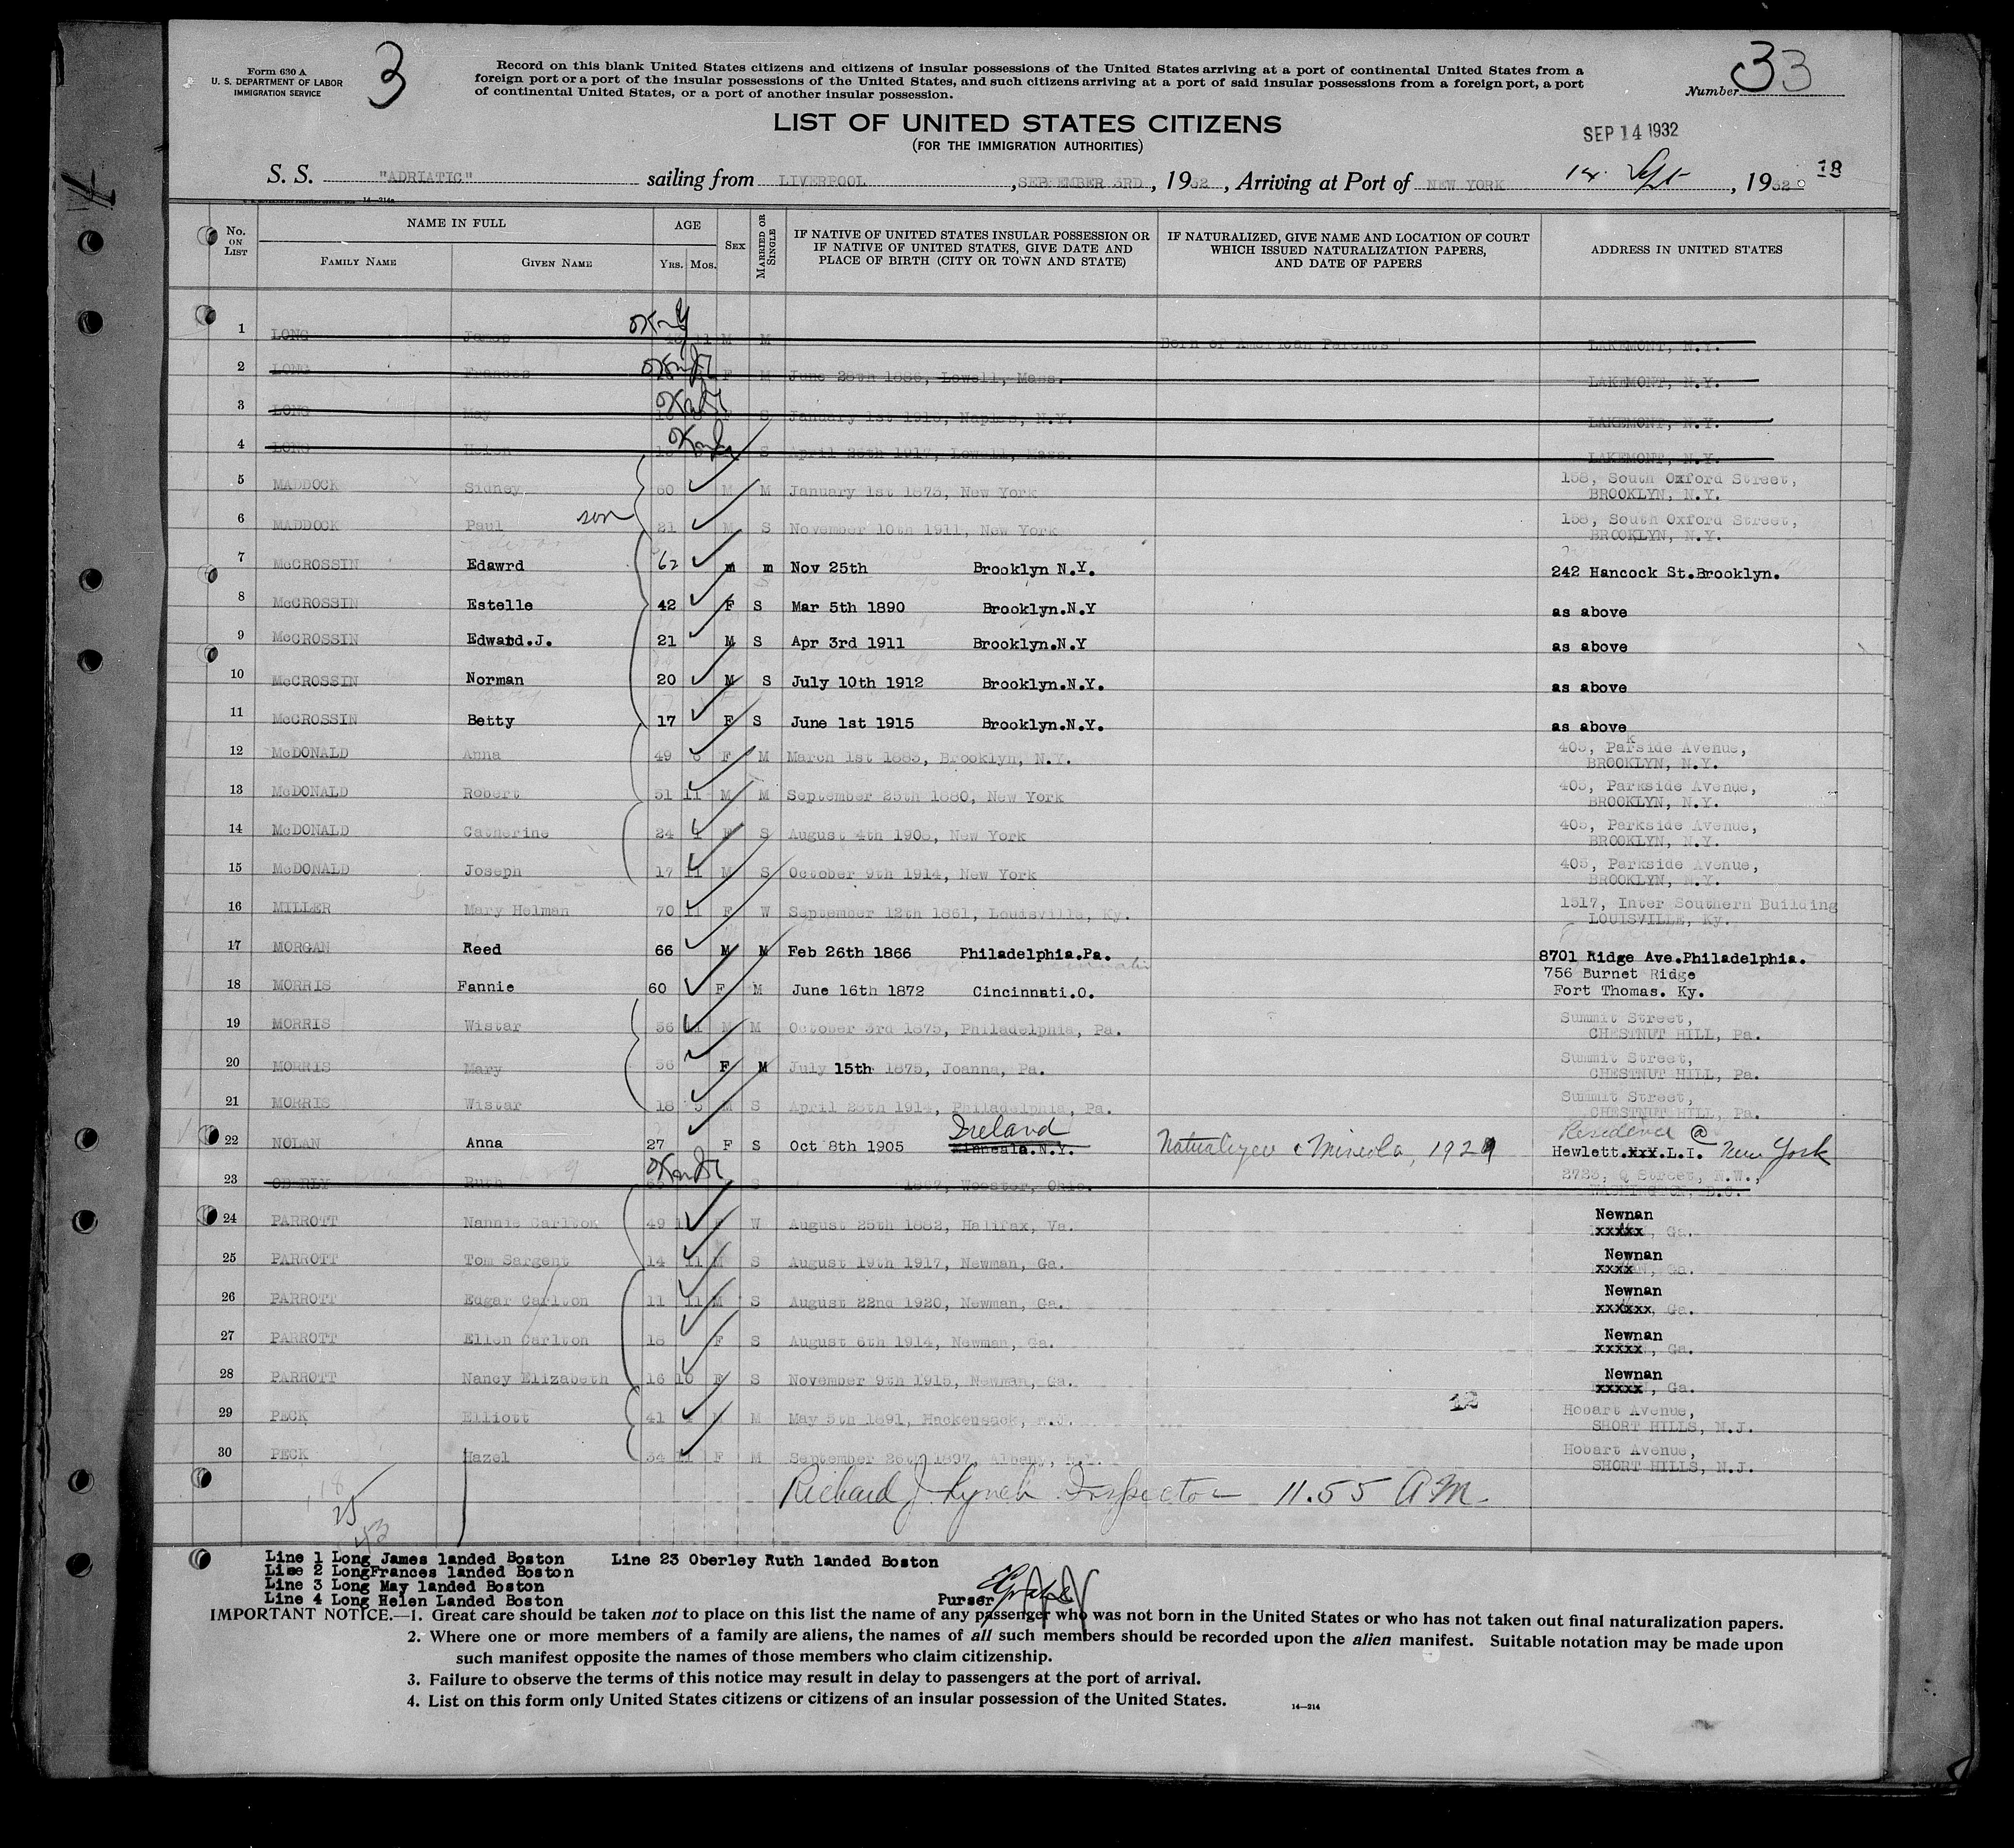 Form 630 A
U. S. DEPARTMENT OF LABOR
IMMIGRATION SERVICE
3
Record on this blank United States citizens and citizens of insular possessions of the United States arriving at a port of continental United States from a
foreign port or a port of the insular possessions of the United States, and such citizens arriving at a port of said insular possessions from a foreign port, a port
of continental United States, or a port of another insular possession.
Number 33
LIST OF UNITED STATES CITIZENS
(FOR THE IMMIGRATION AUTHORITIES)
SEP 14 1932
S. S. "ADRIATIC" sailing from LIVERPOOL, SEPTEMBER 3RD, 1932, Arriving at Port of NEW YORK 14 Sept, 1932 18
No. ON LIST NAME IN FULL FAMILY NAME GIVEN NAME AGE YRS. MOS. SEX MARRIED OR SINGLE
IF NATIVE OF UNITED STATES INSULAR POSSESSION OR IF NATIVE OF UNITED STATES, GIVE DATE AND PLACE OF BIRTH (CITY OR TOWN AND STATE)
IF NATURALIZED, GIVE NAME AND LOCATION OF COURT WHICH ISSUED NATURALIZATION PAPERS, AND DATE OF PAPERS
ADDRESS IN UNITED STATES
1 LONG James 11 M M Born of American Parents LAKEMONT, N.Y.
2 LONG Frances F M June 28th 1886, Lowell, Mass. LAKEMONT, N.Y.
3 LONG May S January 1st 1913, Naples, N.Y. LAKEMONT, N.Y.
4 LONG Helen 15 S April 25th 1917, Lowell, Mass. LAKEMONT, N.Y.
5 MADDOCK Sidney 60 M M January 1st 1873, New York 158, South Oxford Street, BROOKLYN, N.Y.
6 MADDOCK Paul son 21 M S November 10th 1911, New York 158, South Oxford Street, BROOKLYN, N.Y.
7 McCROSSIN Edawrd 62 m m Nov 25th Brooklyn N.Y. 242 Hancock St.Brooklyn.
8 McCROSSIN Estelle 42 F S Mar 5th 1890 Brooklyn.N.Y as above
9 McCROSSIN Edward.J. 21 M S Apr 3rd 1911 Brooklyn.N.Y as above
10 McCROSSIN Norman 20 M S July 10th 1912 Brooklyn.N.Y. as above
11 McCROSSIN Betty 17 F S June 1st 1915 Brooklyn.N.Y. as above
12 McDONALD Anna 49 6 F M March 1st 1883, Brooklyn, N.Y. 405, Parkside Avenue, BROOKLYN, N.Y.
13 McDONALD Robert 51 11 M M September 25th 1880, New York 405, Parkside Avenue, BROOKLYN, N.Y.
14 McDONALD Catherine 24 1 F S August 4th 1908, New York 405, Parkside Avenue, BROOKLYN, N.Y.
15 McDONALD Joseph 17 11 M S October 9th 1914, New York 405, Parkside Avenue, BROOKLYN, N.Y.
16 MILLER Mary Helman 70 11 F W September 12th 1861, Louisville, Ky. 1517, Inter Southern Building LOUISVILLE, Ky.
17 MORGAN Reed 66 M M Feb 26th 1866 Philadelphia.Pa. 8701 Ridge Ave.Philadelphia.
18 MORRIS Fannie 60 F M June 16th 1872 Cincinnati.O. 756 Burnet Ridge Fort Thomas. Ky.
19 MORRIS Wistar 56 11 M M October 3rd 1875, Philadelphia, Pa. Summit Street, CHESTNUT HILL, Pa.
20 MORRIS Mary 56 F M July 15th 1875, Joanna, Pa. Summit Street, CHESTNUT HILL, Pa.
21 MORRIS Wistar 18 5 M S April 28th 1914, Philadelphia, Pa. Summit Street, CHESTNUT HILL, Pa.
22 NOLAN Anna 27 F S Oct 8th 1905 Ireland Minneala.N.Y. Naturalized Mineola, 1929 Residence @ Hewlett.xxx.L.I. New York
23 OBERLY Ruth S 1897, Wooster, Ohio. 2723, Q Street, N.W., WASHINGTON, D.C.
24 PARROTT Nannie Carlton 49 11 F W August 25th 1882, Halifax, Va. Newnan xxxxx, Ga.
25 PARROTT Tom Sargent 14 11 M S August 19th 1917, Newman, Ga. Newnan xxxx, Ga.
26 PARROTT Edgar Carlton 11 11 M S August 22nd 1920, Newman, Ga. Newnan xxxxxx, Ga.
27 PARROTT Ellen Carlton 18 F S August 6th 1914, Newman, Ga. Newnan xxxxx, Ga.
28 PARROTT Nancy Elizabeth 16 10 F S November 9th 1915, Newman, Ga. Newnan xxxxx, Ga.
29 PECK Elliott 41 M May 5th 1891, Hackensack, N.J. 12 Hobart Avenue, SHORT HILLS, N.J.
30 PECK Hazel 34 11 F M September 26th 1897, Albany, N.Y. Hobart Avenue, SHORT HILLS, N.J.
Richard J. Lynch Inspector 11.55 AM.
18
25
43
Line 1 Long James landed Boston Line 23 Oberley Ruth landed Boston
Line 2 LongFrances landed Boston
Line 3 Long May landed Boston
Line 4 Long Helen Landed Boston
Purser
IMPORTANT NOTICE.—1. Great care should be taken not to place on this list the name of any passenger who was not born in the United States or who has not taken out final naturalization papers.
2. Where one or more members of a family are aliens, the names of all such members should be recorded upon the alien manifest. Suitable notation may be made upon
such manifest opposite the names of those members who claim citizenship.
3. Failure to observe the terms of this notice may result in delay to passengers at the port of arrival.
4. List on this form only United States citizens or citizens of an insular possession of the United States.
14—214